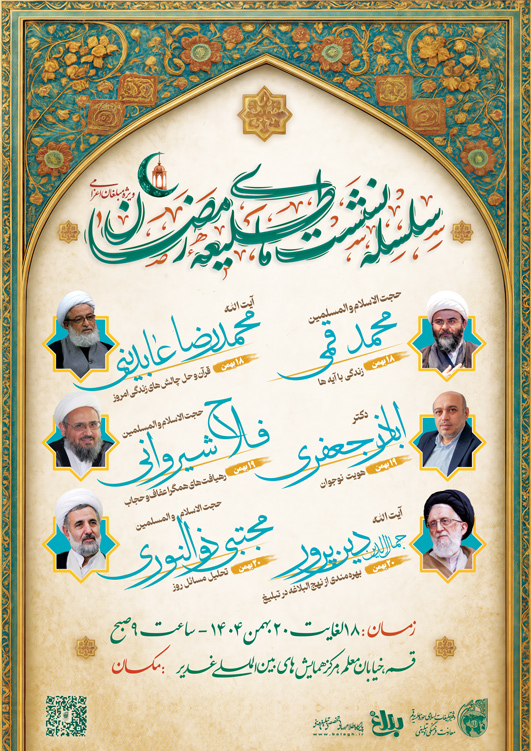 سلسله نشست های طلیعه ماه رمضان
ویژه مبلغان اعزامی
حجت الاسلام والمسلمین
محمد قمی
۱۸ بهمن
زندگی با آیه ها
آیت الله
محمدرضا عابدینی
۱۸ بهمن
قرآن و حل چالش های زندگی امروز
دکتر
اباذر جعفری
۱۹ بهمن
هویت نوجوان
حجت الاسلام والمسلمین
فلاح شیروانی
۱۹ بهمن
رهیافت های همگرا عفاف و حجاب
آیت الله
جمال الدین دین پرور
۲۰ بهمن
بهره مندی از نهج البلاغه در تبلیغ
حجت الاسلام والمسلمین
مجتبی ذوالنوری
۲۰ بهمن
تحلیل مسائل روز
زمان: ۱۸ لغایت ۲۰ بهمن ۱۴۰۴ - ساعت ۹ صبح
مکان: قم، خیابان معلم، مرکز همایش های بین المللی غدیر
معاونت فرهنگی تبلیغی
بلاغ